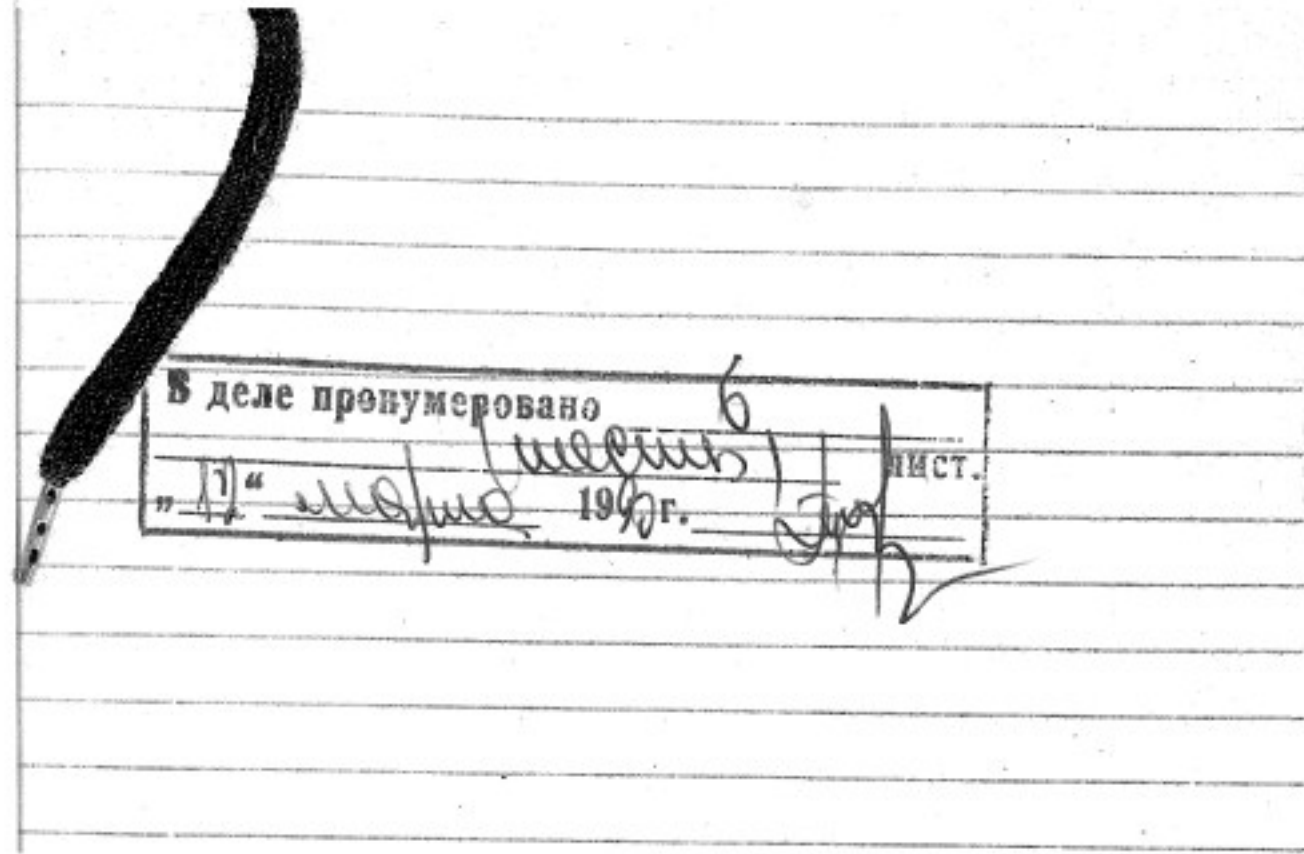 В деле пронумеровано 6
(шесть) лист.
„12“ марта 1990г.